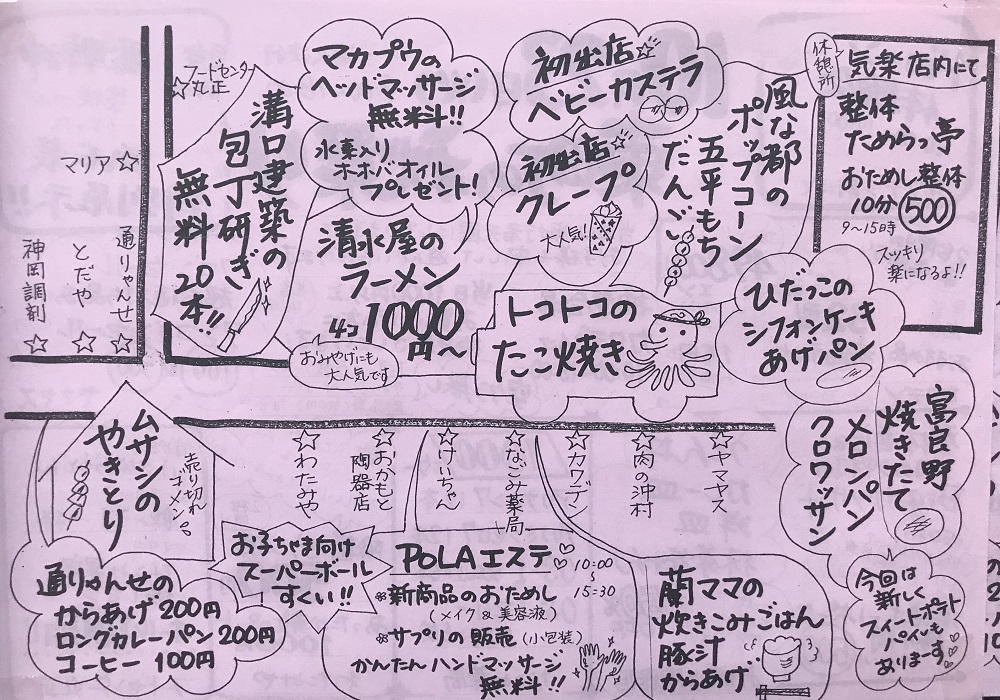 ☆フードセンター
丸正
マリア☆
通りゃんせ☆
とだや☆
神岡調剤☆
溝口建築の
包丁研ぎ
無料20本!!
マカプウの
ヘッドマッサージ
無料!!
水素入り
ホホバオイル
プレゼント!
清水屋の
ラーメン
4コ1000円〜
おみやげにも
大人気です
初出店☆
ベビーカステラ
初出店☆
クレープ
大人気!
風な都の
ポップコーン
五平もち
だんご
休憩所
気楽店内にて
整体
ためらっ亭
おためし整体
10分500
9〜15時
スッキリ
楽になるよ!!
トコトコの
たこ焼き
ひだっこの
シフォンケーキ
あげパン
富良野
焼きたて
メロンパン
クロワッサン
今回は
新しく
スイートポテト
パイも
あります♡
☆ヤマヤス
☆肉の沖村
☆カワデン
☆なごみ薬局
☆けいちゃん
☆おかもと
陶器店
☆わたみや
ムサシの
やきとり
売り切れ
ゴメン。
通りゃんせの
からあげ200円
ロングカレーパン200円
コーヒー100円
お子ちゃま向け
スーパーボール
すくい!!
POLAエステ♡
10:00
〜
15:30
※新商品のおためし
(メイク&美容液)
※サプリの販売(小包装)
かんたんハンドマッサージ
無料!!
蘭ママの
炊きこみごはん
豚汁
からあげ